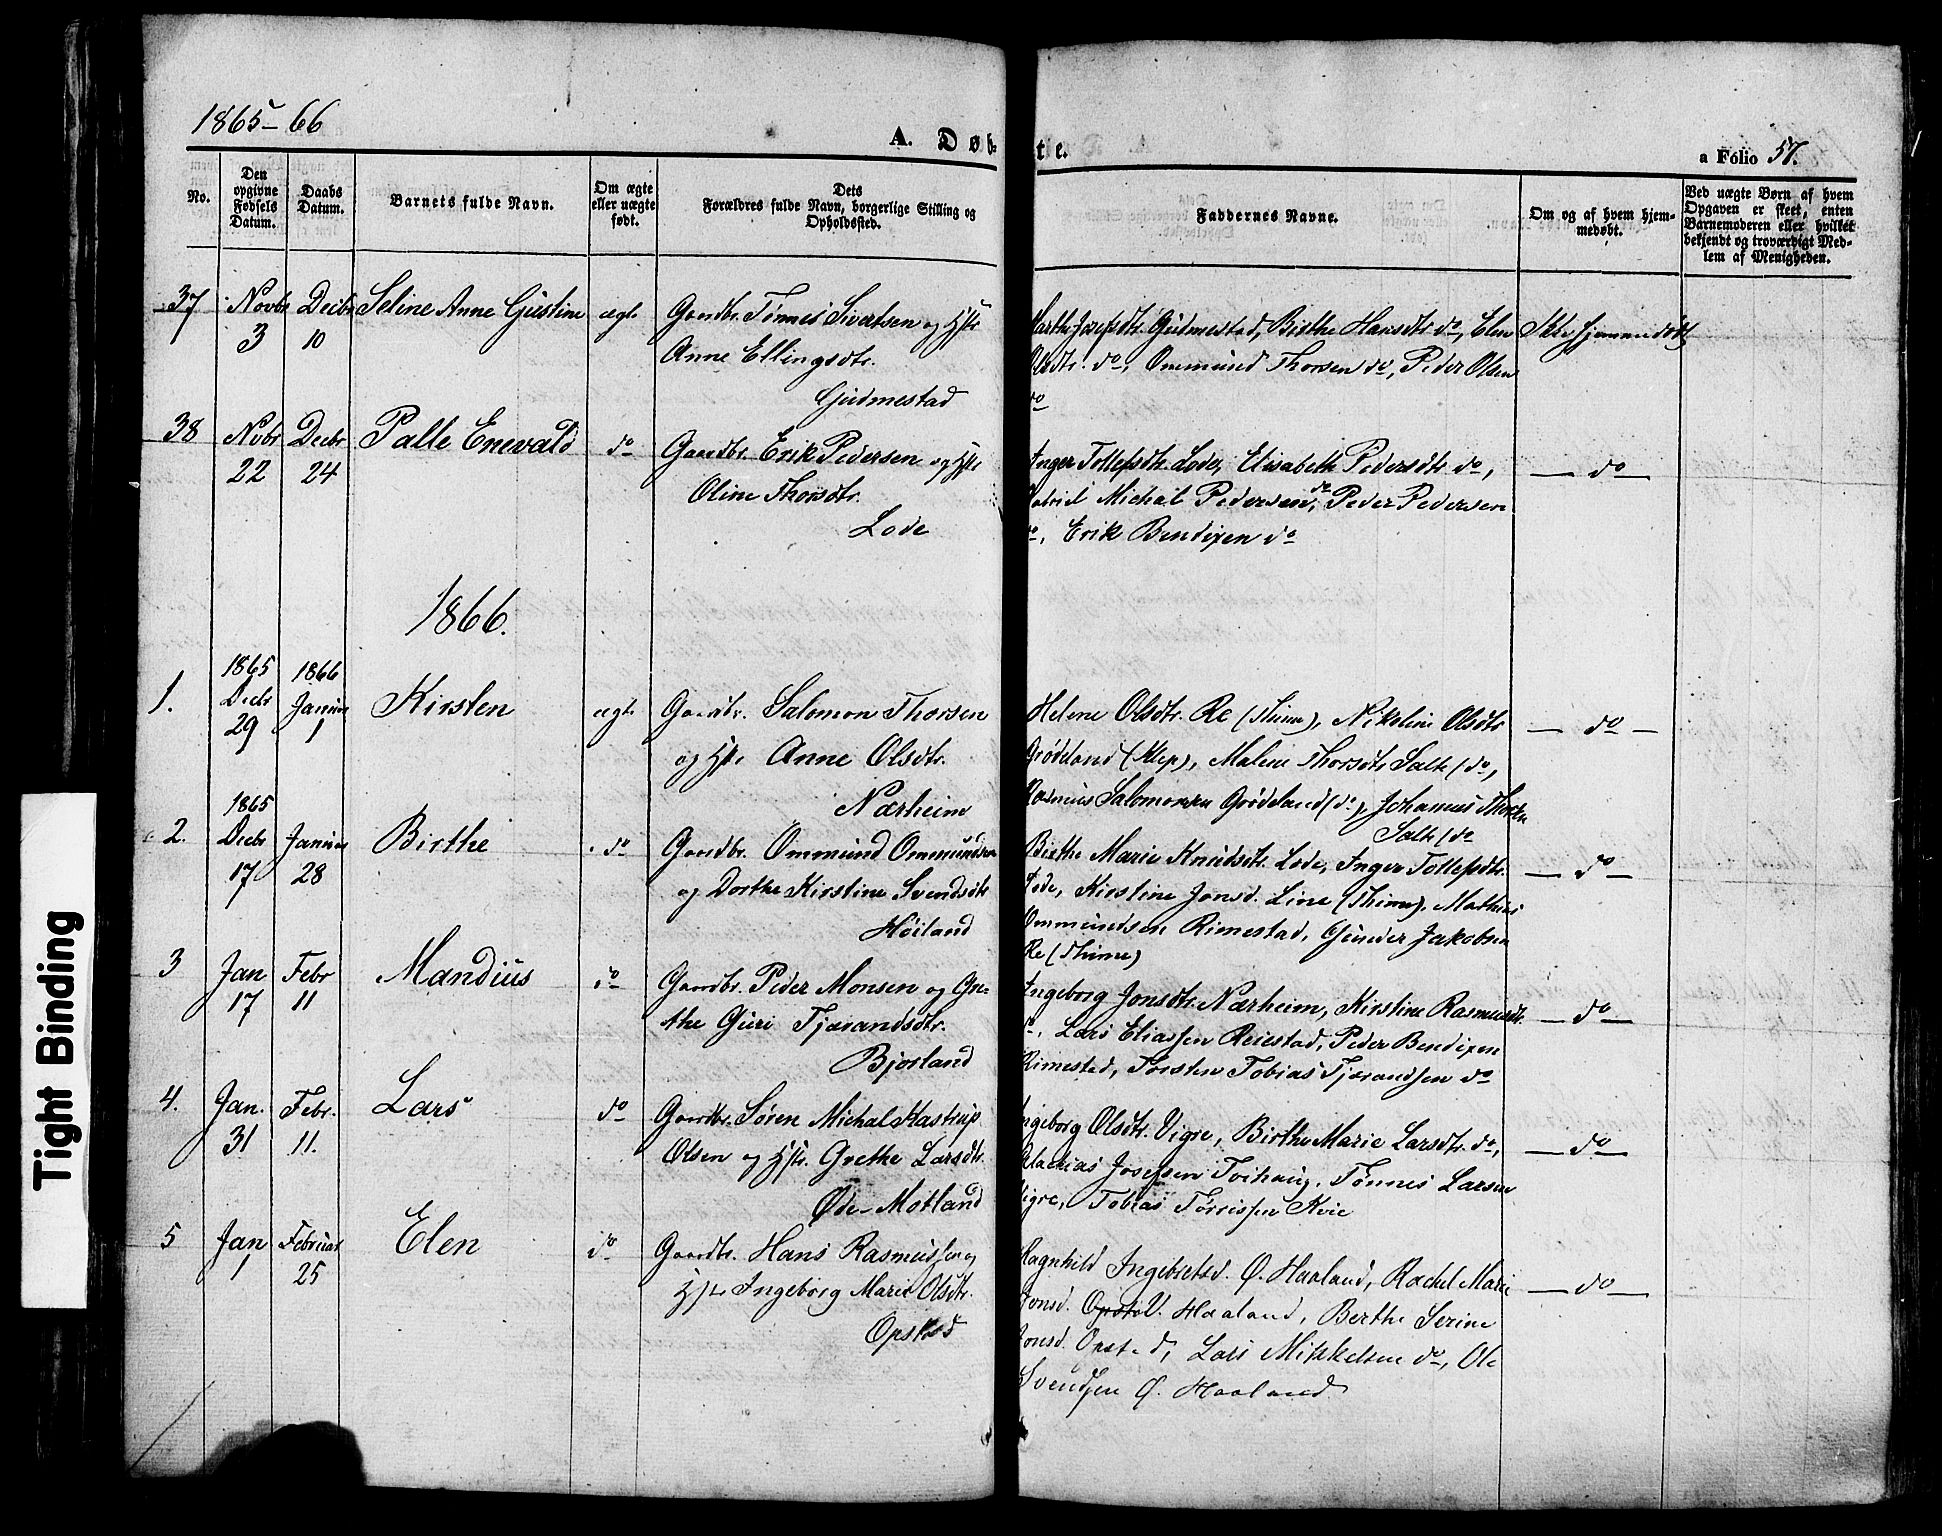 1865-66
A. Døb-
te.
a Folio 57.
No.
Den opgivne Fødsels Datum.
Daabs Datum.
Barnets fulde Navn.
Om ægte eller uægte født.
Dets Forældres fulde Navn, borgerlige Stilling og Opholdssted.
Faddernes Navne.
Om og af hvem hjemmedøbt.
Ved uægte Børn af hvem Opgaven er skeet, enten Barnemoderen eller hvilket bekjendt og troværdigt Medlem af Menigheden.
37 Novbr 3 Decbr 10 Seline Anne Gustine ægte
Gaardbr. Tønnes Sivertsen og Hstr
Anne Ellingsdtr.
Gudmestad
Marthe Josefsdtr. Gudmestad, Birthe Hansdtr do, Elen
Olsdtr. do, Ommund Thorsen do, Peder Olsen
do
Ikke hjemmedøbt
38 Novbr 22 Decbr 24 Palle Enevald do
Gaardbr. Erik Pedersen og Hstr
Oline Thorsdtr.
Lode
Inger Tollefsdtr. Lode, Elisabeth Pedersdtr do,
Michal Pedersen do, Peder Pedersen
do, Erik Bendixen do
— do —
1866.
1. 1865 Decbr 29 1866 Januar 1 Kirsten ægte
Gaardbr. Salomon Thorsen
og Hstr Anne Olsdtr.
Nærheim
Helene Olsdtr. Re (Thime), Nikoline Olsdtr
Grødeland (Klep), Malene Thorsdtr Salte (do,
Rasmus Salomonsen Grødeland (do), Johannes Thorsen
Salte (do
— do —
2. 1865 Decbr 17 Januar 28 Birthe do
Gaardbr. Ommund Ommundsen
og Dorthe Kirstine Svendsdtr
Høiland
Birthe Marie Knudsdtr. Lode, Inger Tollefsdtr.
Lode, Kirstine Jonsd. Line (Thime), Mathias
Ommundsen Rimestad, Gunder Jakobsen
Re (Thime)
— do —
3 Jan 17 Febr 11 Mandius do
Gaardbr. Peder Monsen og Gre-
the Guri Tjærandsdtr.
Bjorland
Ingeborg Jonsdtr. Nærheim, Kirstine Rasmusdtr.
do, Lars Eliassen Reiestad, Peder Bendixen
Rimestad, Torsten Tobias Tjærandsen do
— do —
4. Jan. 31 Febr. 11. Lars do
Gaardbr. Søren Michal Kastrup
Olsen og Hstr. Grethe Larsdtr.
Øde-Motland
Ingeborg Olsdtr. Vigre, Birthe Marie Larsdtr. do,
Malachias Josefsen Tvihaug, Tønnes Larsen
Vigre, Tobias Tørrissen Kvie
— do —
5 Jan 1 Februar 25 Elen do
Gaardbr. Hans Rasmussen og
Hstr Ingeborg Marie Olsdtr.
Opstad
Ragnhild Ingebretsd. Ø. Haaland, Rachel Marie
Jonsd. V. Haaland, Berthe Serine
Jonsd. Opstad, Lars Mikkelsen do, Ole
Svendsen Ø. Haaland
— do —
Tight Binding